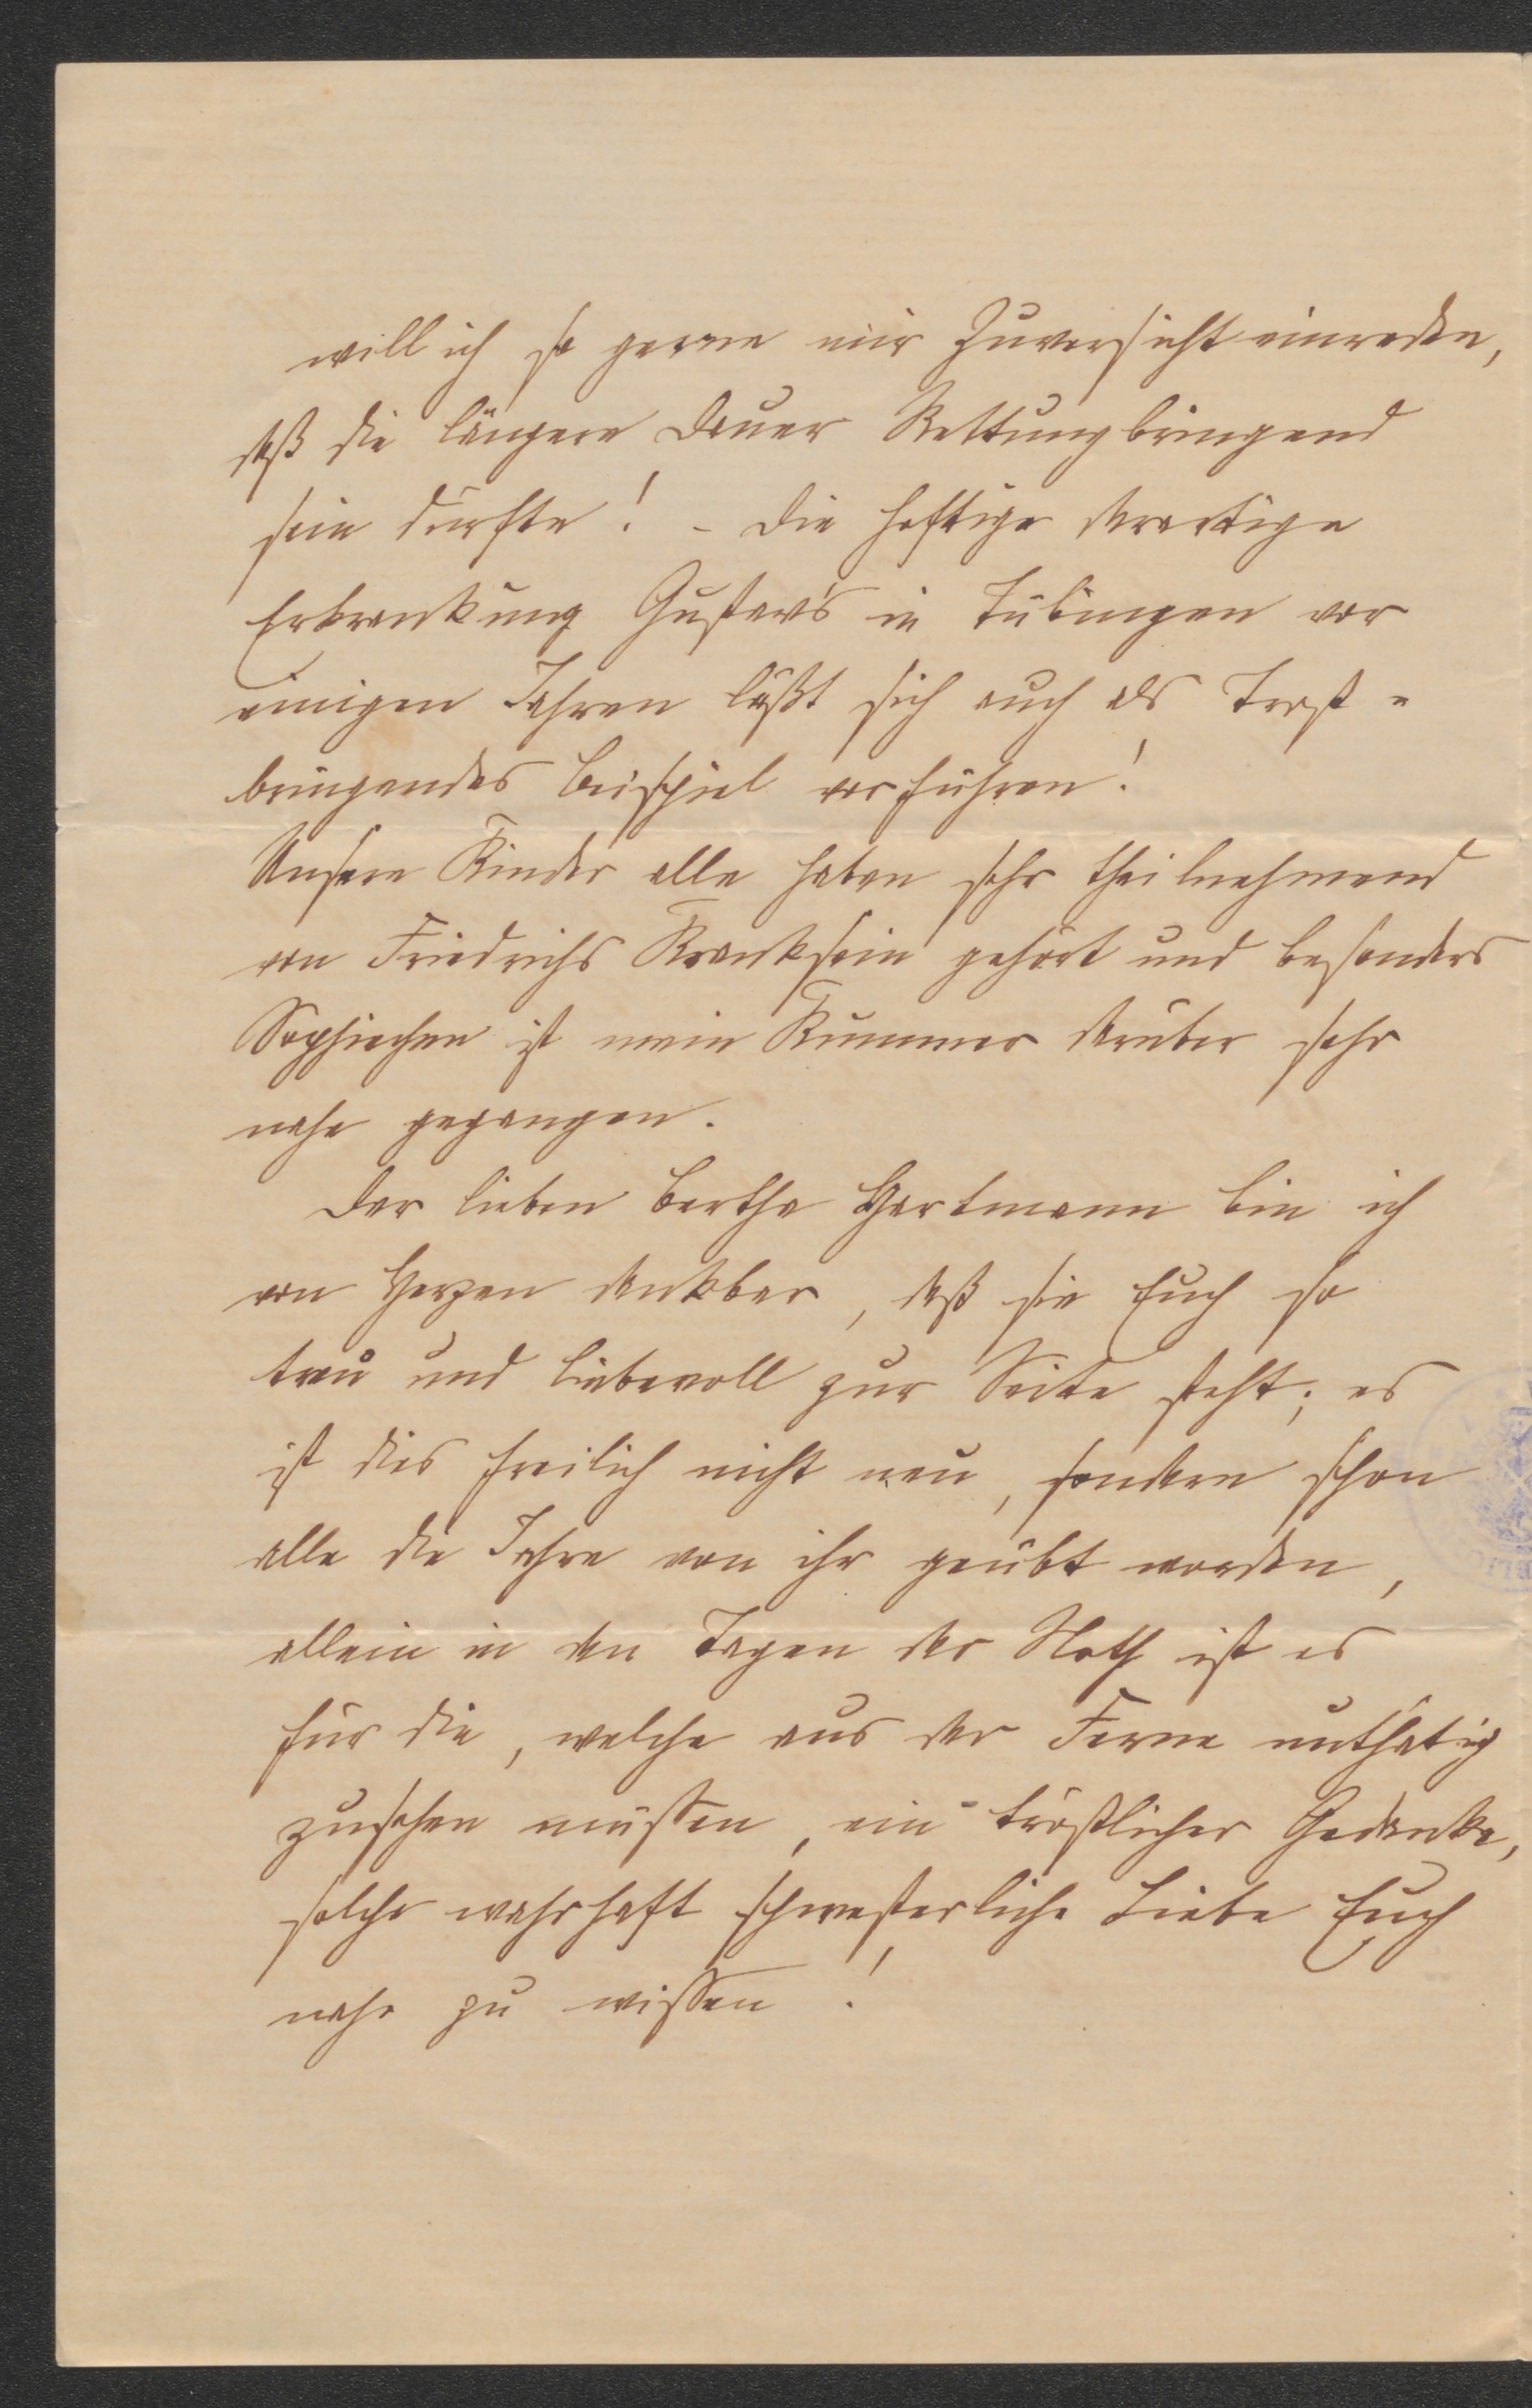 will ich so gerne mir Zuversicht einreden,
daß die längere Dauer Rettungbringend
sein dürfte! – Die heftige derartige
Erkrankung Gustav's in Tübingen vor
einigen Jahren läßt sich auch als Trost-
bringendes Beispiel vorführen!
Unsere Kinder alle haben sehr theilnehmend
von Friedrichs Kranksein gehört und besonders
Sophiechen ist mein Kummer darüber sehr
nahe gegangen.
Der lieben Bertha Hartmann bin ich
von Herzen dankbar, daß sie Euch so
treu und liebevoll zur Seite steht; es
ist dies freilich nicht neu, sondern schon
alle die Jahre von ihr geübt worden,
allein in den Tagen der Noth ist es
für die, welche aus der Ferne unthätig
zusehen müssen, ein tröstlicher Gedanke,
solche wahrhaft schwesterliche Liebe Euch
nahe zu wissen!